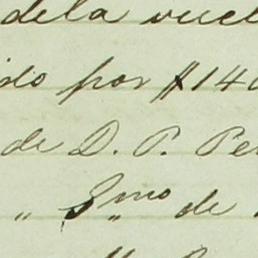 dela vuel
do por $140
de D. P. Pe
" S.mo de